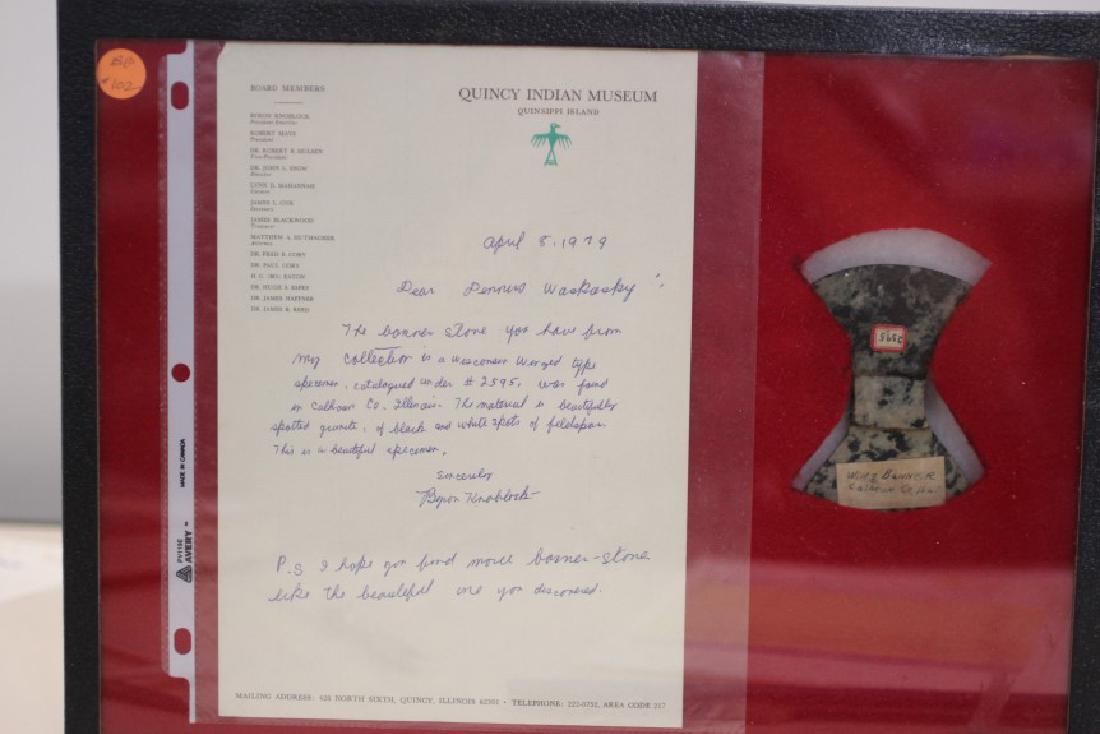 #102
BOARD MEMBERS
BYRON KNOBLOCK
President Emeritus
ROBERT MAYS
President
Vice-President
DR. JOHN A. SNOW
Director
JAMES L. COX
JAMES BLACKWOOD
Treasurer
MATTHEW A. HUTMACHER
Attorney
DR. FRED D. CORY
DR. PAUL CORY
DR. JAMES HAFFNER
DR. JAMES R. REED
QUINCY INDIAN MUSEUM
QUINSIPPI ISLAND
April 8, 1979
Dear Dennis Waskasky:
The banner stone you have from
my collection is a Wisconsin Winged type
specimen, catalogued under # 2595, was found
in Calhoun Co. Illinois. The material is beautifully
spotted granite, of black and white spots of feldspar.
This is a beautiful specimen.
Sincerely
Byron Knoblock
P.S I hope you find more banner-stone
like the beautiful one you discovered.
MAILING ADDRESS: 628 NORTH SIXTH, QUINCY, ILLINOIS 62301 • TELEPHONE: 222-0751, AREA CODE 217
MADE IN CANADA
AVERY ™
WING BANNER
Calhoun Co. Ills.